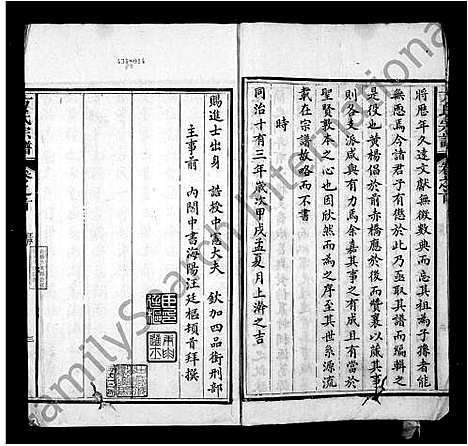 將歷年久遠文獻無徵數典而忘其祖為子孫者能
無慝焉今諸君子有慨於此乃亟取其譜而編輯之
是役也黃楊倡於前赤橋應於後而贊襄以蕆其事
則又各與有力焉余嘉其事之有成且有當於
聖賢教本之心也因欣然而為之序至其世系源流
載在宗譜故略而不書
時
同治十有三年歲次甲戌孟夏月上澣之吉
賜進士出身 誥授中憲大夫 欽加四品銜刑部
主事前 內閣中書海陽汪廷樞頓首拜撰
氏宗譜
卷之首
FamilySearch International